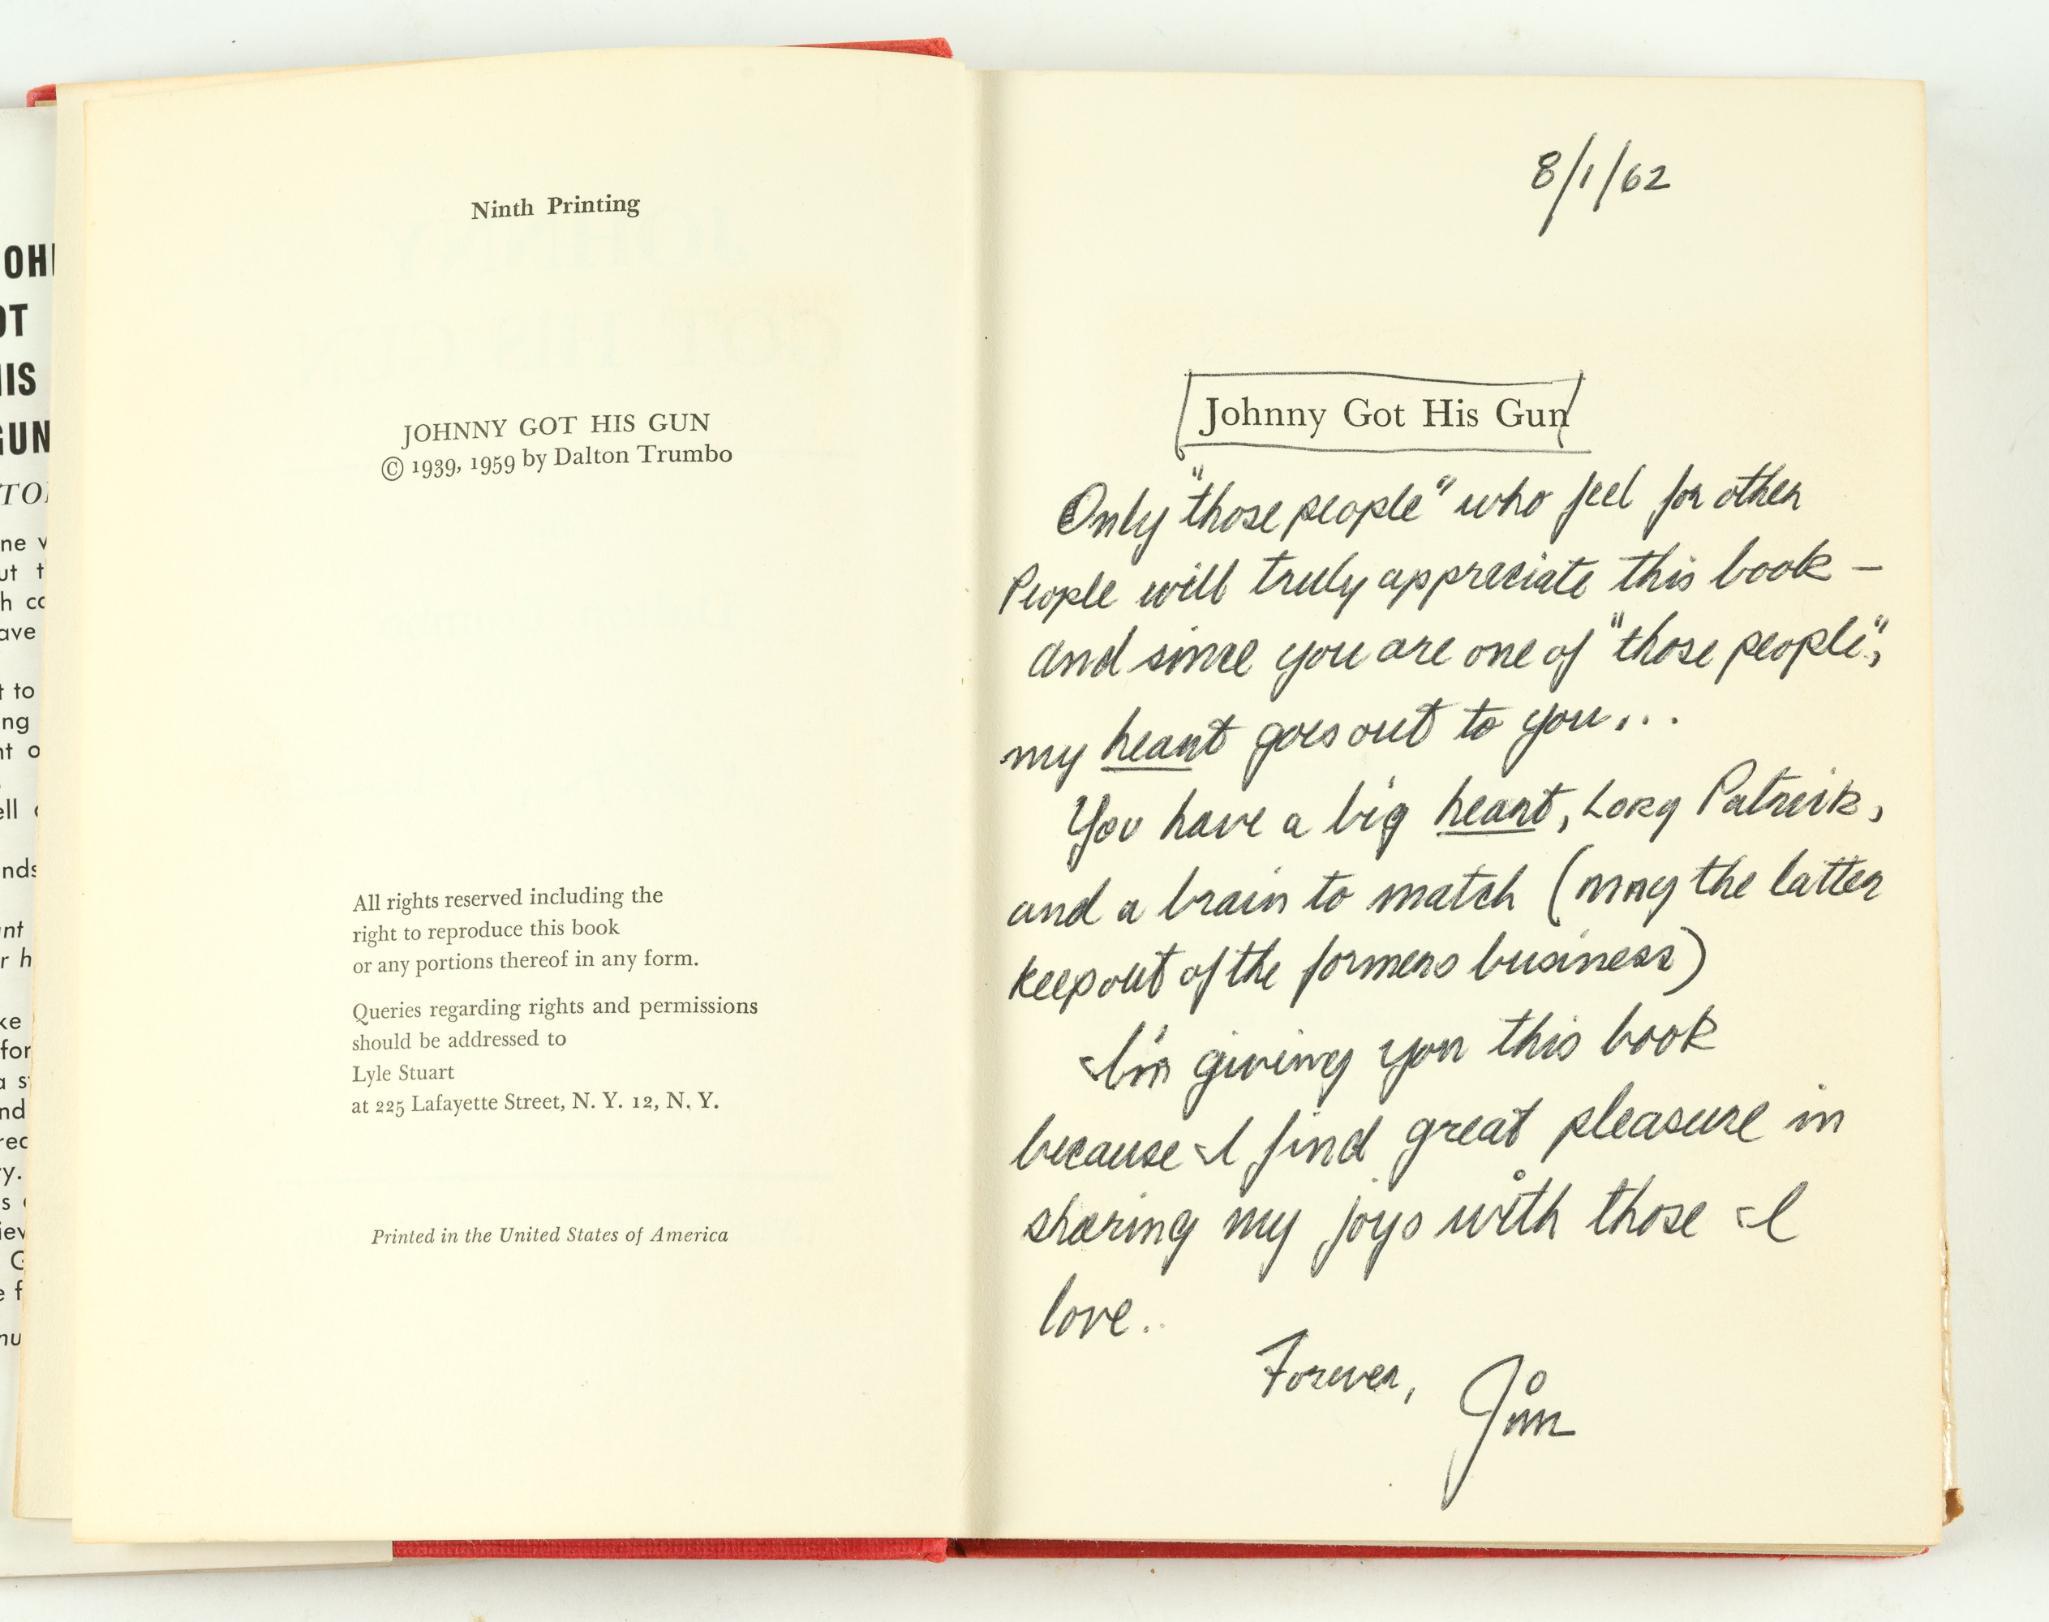 OH
OT
HIS
GUN
Ninth Printing
JOHNNY GOT HIS GUN
© 1939, 1959 by Dalton Trumbo
All rights reserved including the
right to reproduce this book
or any portions thereof in any form.
Queries regarding rights and permissions
should be addressed to
Lyle Stuart
at 225 Lafayette Street, N. Y. 12, N. Y.
Printed in the United States of America
8/1/62
Johnny Got His Gun
Only "those people" who feel for other
People will truly appreciate this book —
and since you are one of "those people",
my heart goes out to you...
You have a big heart, Lory Patrick,
and a brain to match (may the latter
keep out of the formers business)
I'm giving you this book
because I find great pleasure in
sharing my joys with those I
love..
Forever,
Jim